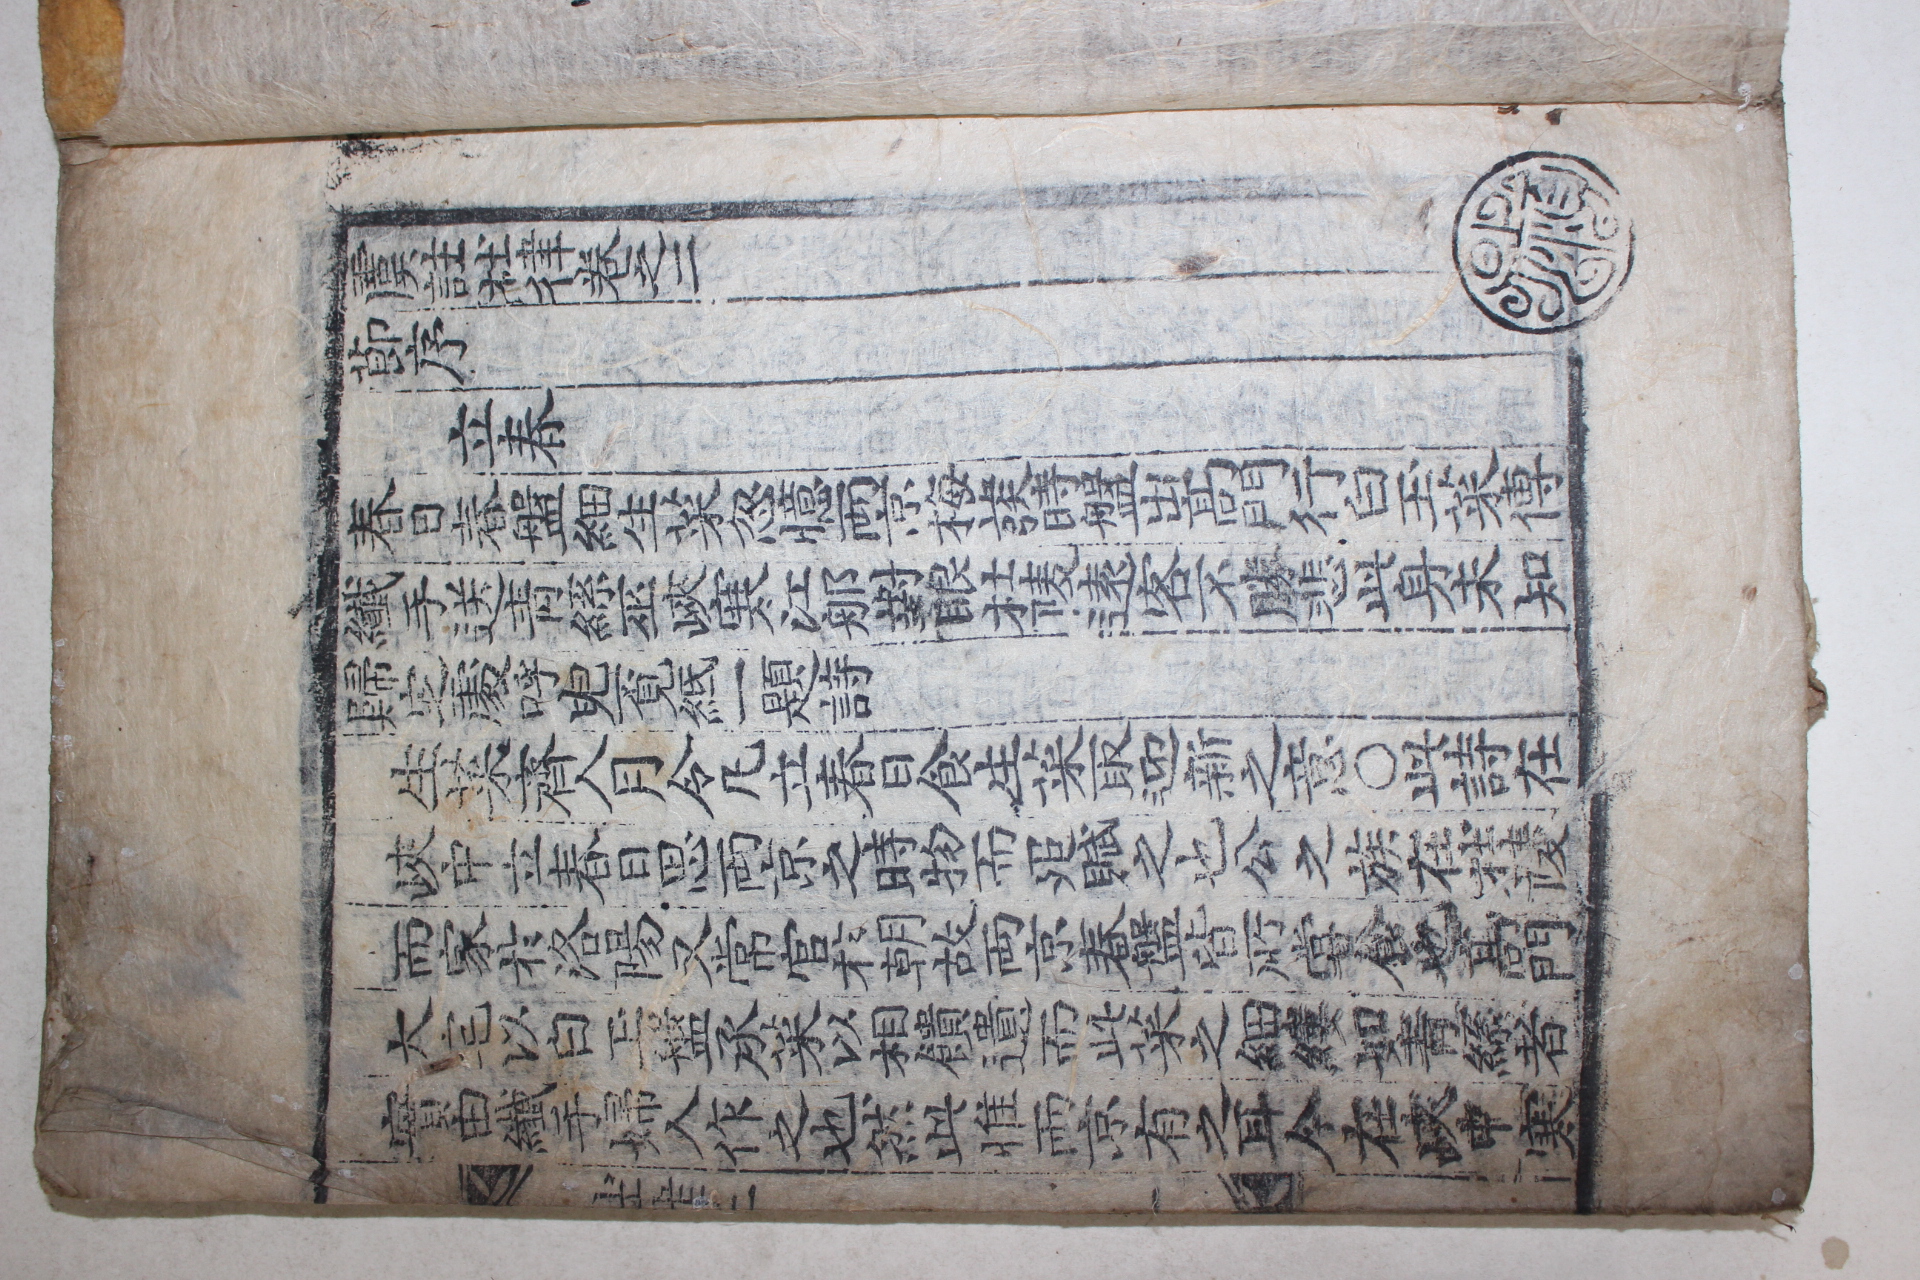 虞註杜律卷之二
節序
立春
春日春盤細生菜忽憶兩京梅發時盤出高門行白玉菜傳
纖手送青絲巫峽寒江那對眼杜陵遠客不勝悲此身未知
歸定處呼兒覓紙一題詩
生菜齊人月令凡立春日食生菜取迎新之意○此詩在
峽中立春日思兩京之時物而追賦之也公之族在杜陵
而家於洛陽又常官於朝故兩京春盤皆所嘗食也高門
大宅以白玉盤承菜以相饋遺而此菜之細縷如青絲者
實由纖手婦人作之也然此惟兩京有之耳今在峽中寒
杜律二 一